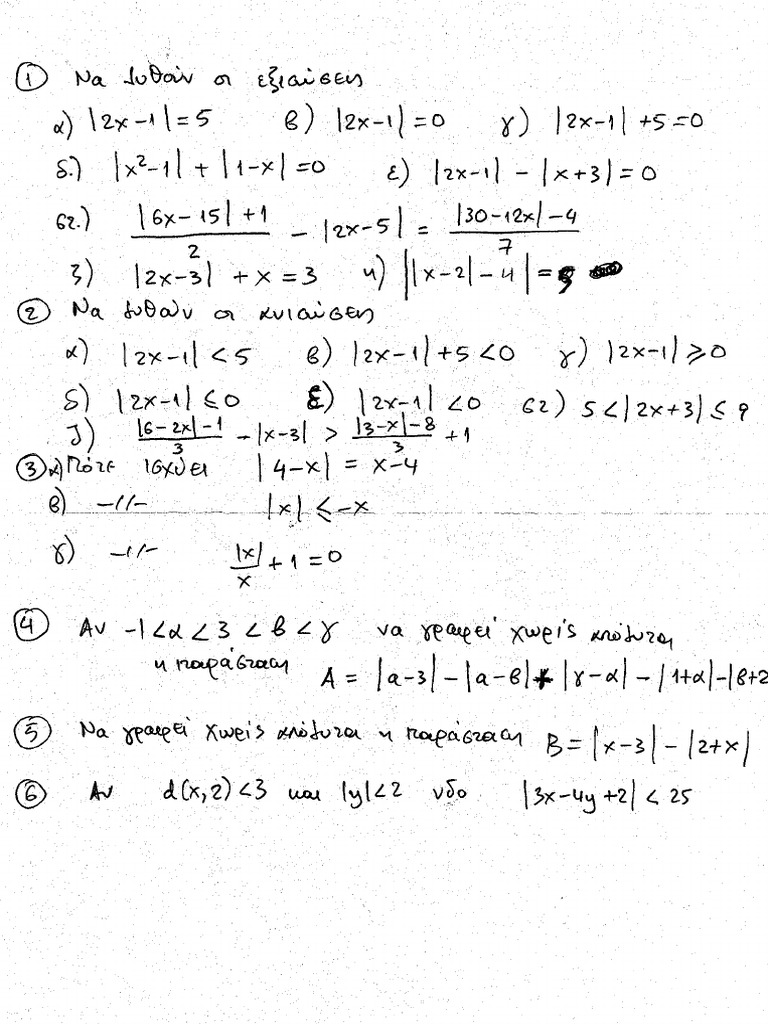 ① Να λυθούν οι εξισώσεις
α) |2x-1|=5 β) |2x-1|=0 γ) |2x-1|+5=0
δ.) |x²-1| + |1-x|=0 ε) |2x-1| - |x+3|=0
στ.) (|6x-15|+1)/2 - |2x-5| = (|30-12x|-4)/7
ζ) |2x-3| + x = 3 η) ||x-2|-4| =
② Να λυθούν οι ανισώσεις
α) |2x-1|<5 β) |2x-1|+5<0 γ) |2x-1|⩾0
δ) |2x-1|≤0 ε) |2x-1|<0 στ) 5<|2x+3|≤9
ζ) (|6-2x|-1)/3 - |x-3| > (|3-x|-8)/3 + 1
③ α) Πότε ισχύει |4-x| = x-4
β) -//- |x| ≤ -x
γ) -//- |x|/x + 1 = 0
④ Αν -1<α<3<β<γ να γραφεί χωρίς απόλυτα
η παράσταση A = |α-3| - |α-β| + |γ-α| - |1+α| - |β+2
⑤ Να γραφεί χωρίς απόλυτα η παράσταση B = |x-3| - |2+x|
⑥ Αν d(x,2)<3 και |y|<2 νδο |3x-4y+2| < 25